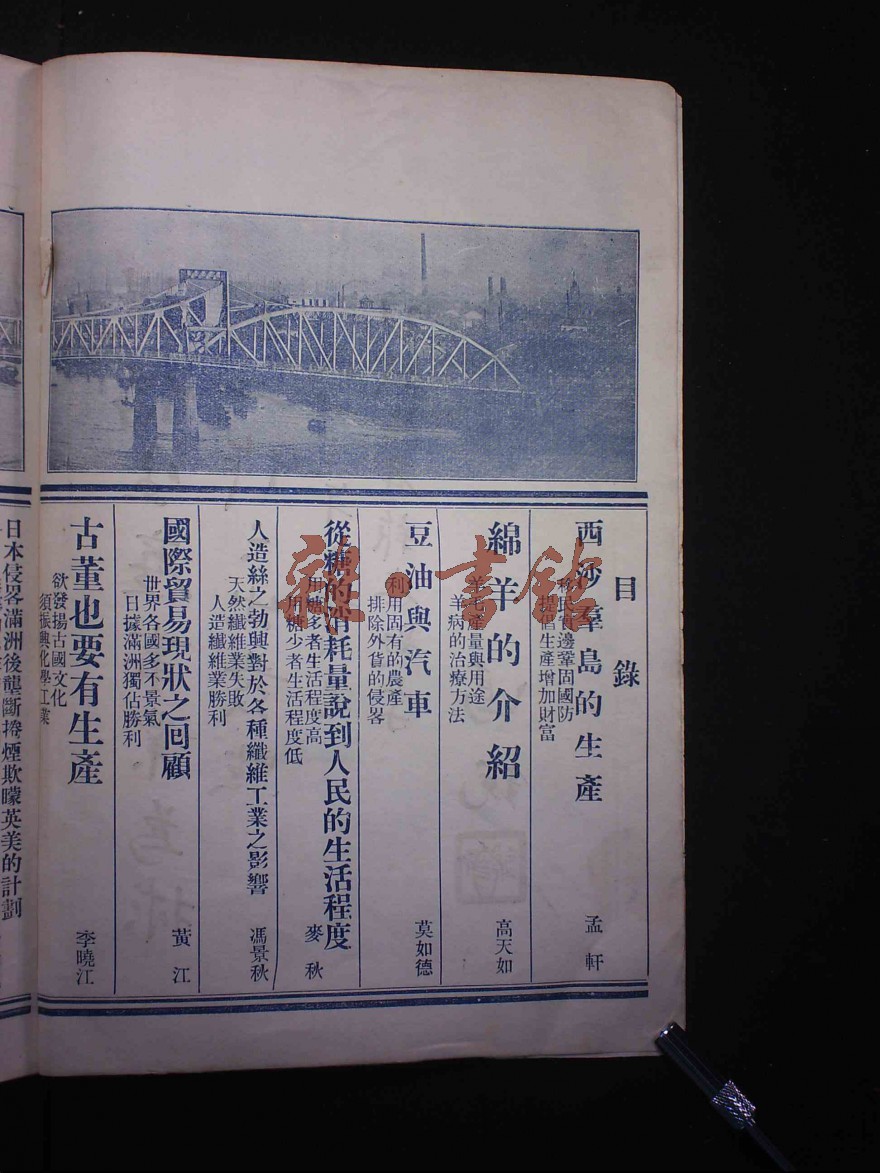 目錄
西沙羣島的生產
移民實邊鞏固國防
提倡生產增加財富
孟軒
綿羊的介紹
羊毛產量與用途
羊病的治療方法
高天如
豆油與汽車
利用固有的農產
排除外貨的侵畧
莫如德
從糖的消耗量說到人民的生活程度
用糖多者生活程度高
用糖少者生活程度低
麥秋
人造絲之勃興對於各種纖維工業之影響
天然纖維業失敗
人造纖維業勝利
馮景秋
國際貿易現狀之回顧
世界各國多不景氣
日據滿洲獨佔勝利
黃江
古董也要有生產
欲發揚古國文化
須振興化學工業
李曉江
日本侵畧滿洲後壟斷捲煙欺矇英美的計劃